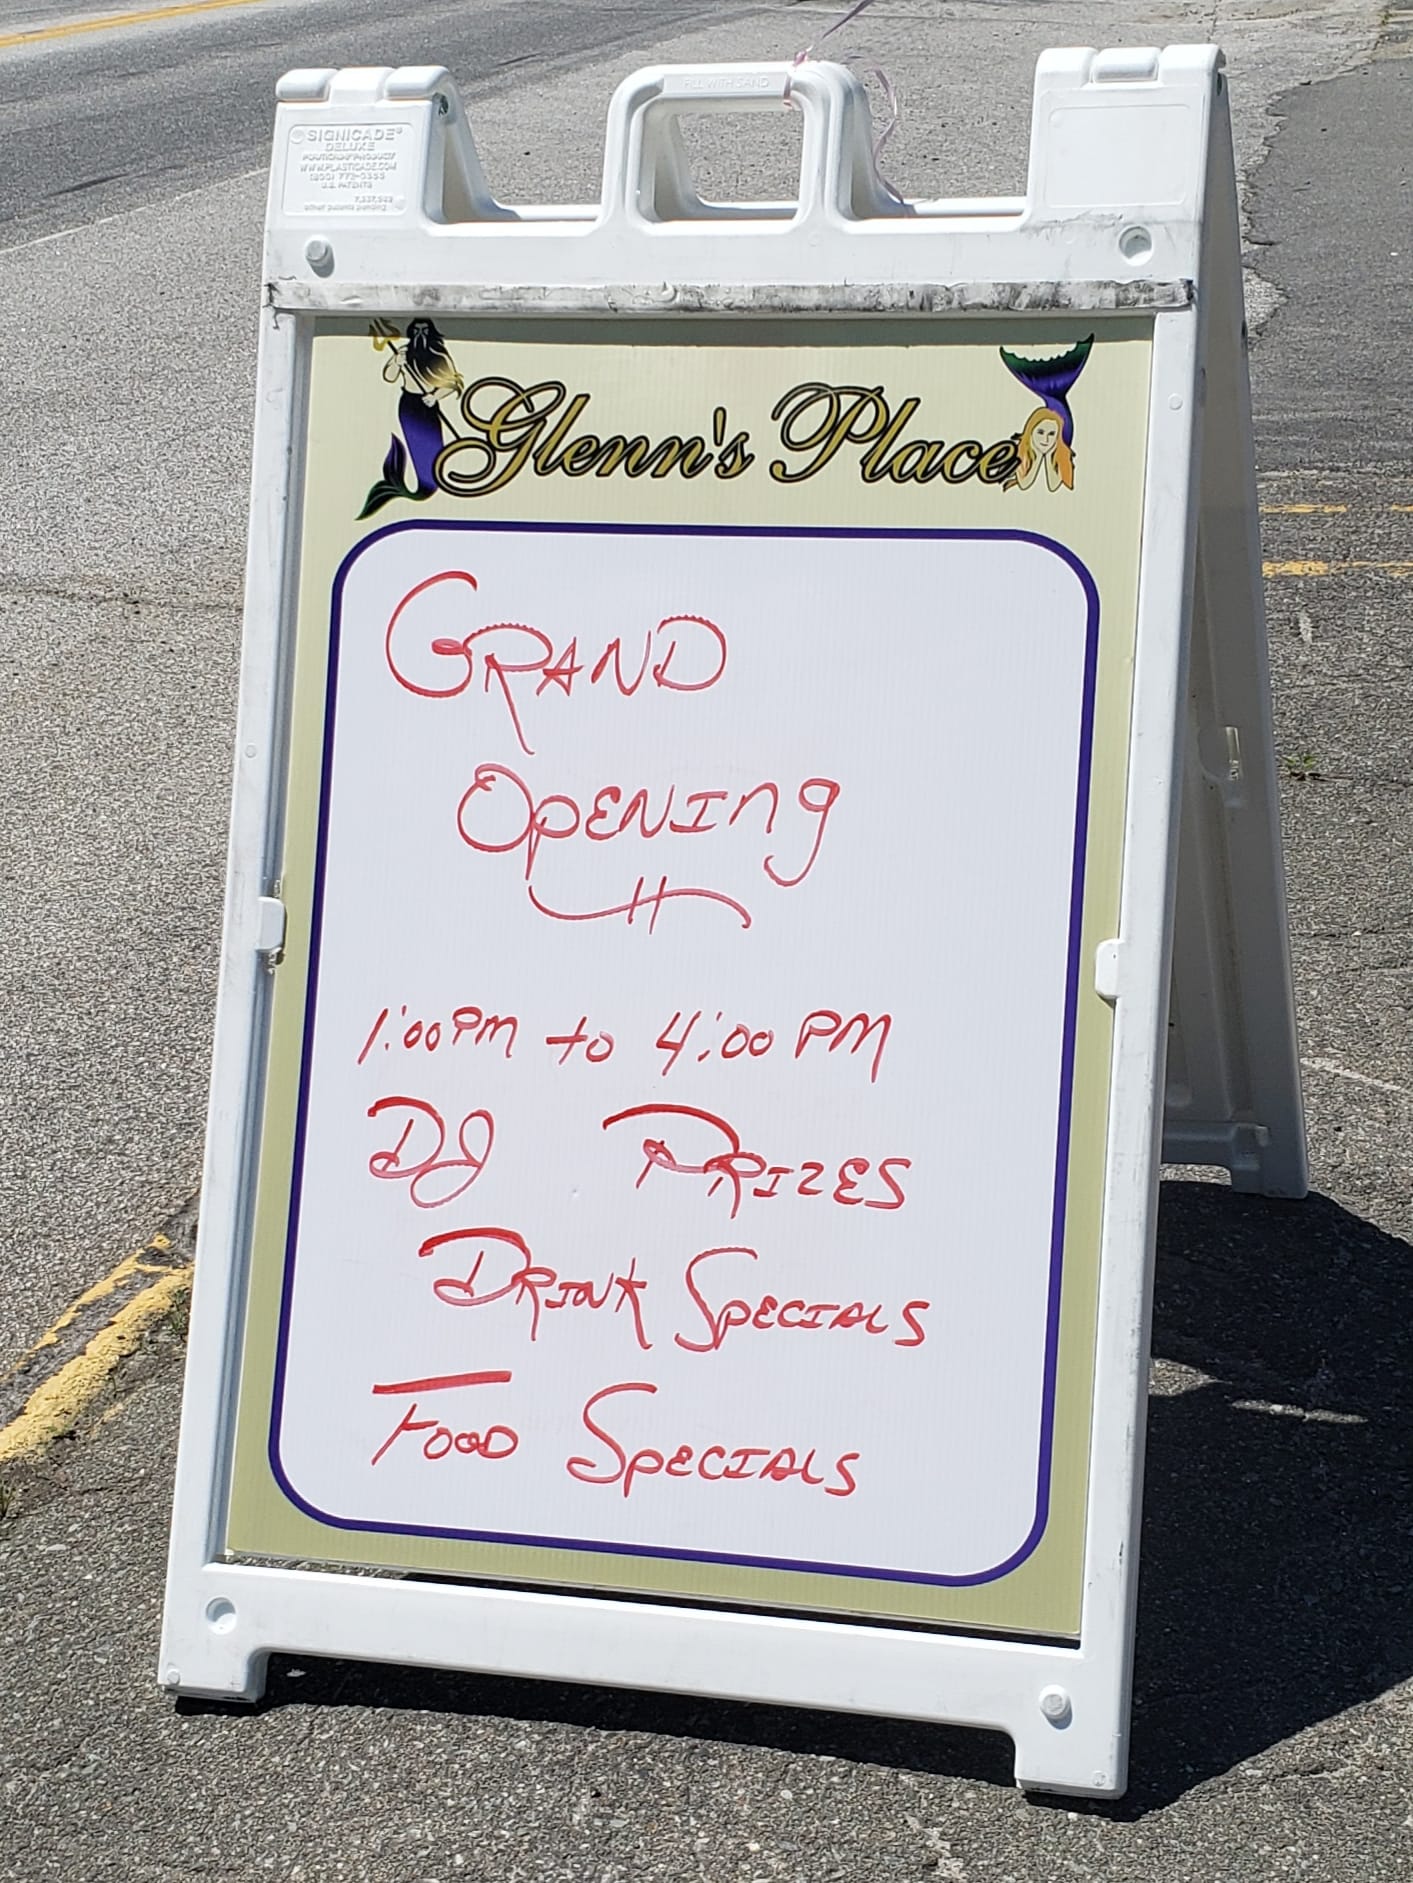 FILL WITH SAND
SIGNICADE®
DELUXE
WWW.PLASTICADE.COM
U.S. PATENTS
other patents pending
Glenn's Place
GRAND
OPENING
1:00 PM to 4:00 PM
DJ PRIZES
DRINK SPECIALS
FOOD SPECIALS